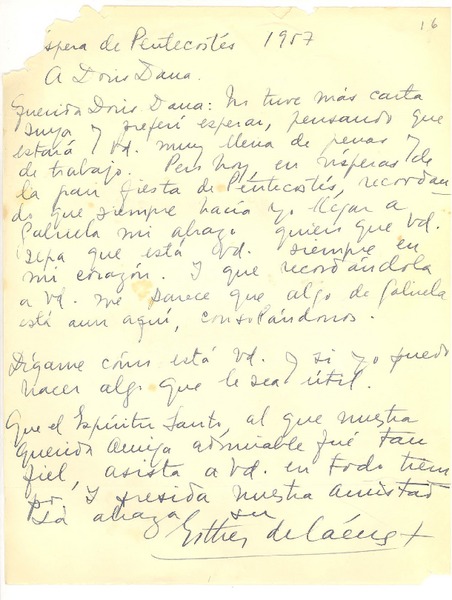 16
spera de Pentecostés 1957
A Doris Dana.
Querida Doris Dana: No tuve más carta
suya y preferí esperar, pensando que
estará Vd. muy llena de penas y
de trabajo. Pero hoy en vísperas de
la gran fiesta de Pentecostés, recordan
do que siempre hacía yo llegar a
Gabriela mi abrazo quiero que Vd.
sepa que está Vd. siempre en
mi corazón. Y que recordándola
a Vd. me parece que algo de Gabriela
está aun aquí, consolándonos.
Dígame cómo está Vd. y si yo puedo
hacer algo que le sea útil.
Que el Espíritu Santo, al que nuestra
querida amiga admirable fué tan
fiel, asista a Vd. en todo tiem
po y presida nuestra amistad
La abraza su
Esther de Cáceres +